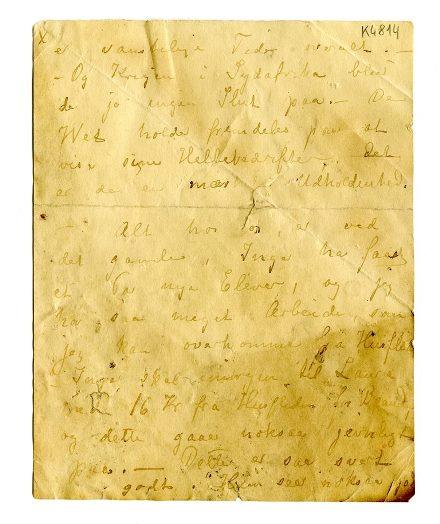 K4814
er vanskelige Tider overalt. —
— Og Krigen i Sydafrika blev
de jo ingen Slut paa. — De
Wet holde fremdeles paa at
vise sine Heltebedrifter. det
er de en Udholdenhed.
— Alt hos os, er ved
det gamle, Inga ha faaet
et Par nye Elever, og jeg
ha saa meget Arbeide, som
jeg kan overkomme fra Husfliden
— Inga skal imorgen til
med 16 Kr fra Husfliden for
og dette gaar noksaa jevnligt
paa. — Dette er saa svært
godt. nok saa